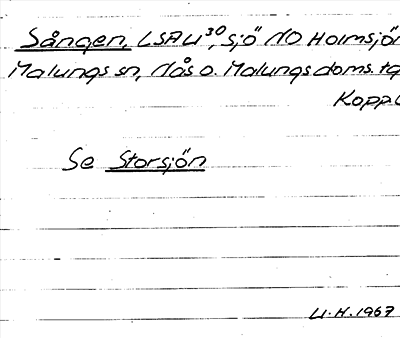 Sången, LSA U 30, sjö NO Holmsjön
Malungs sn, Nås o. Malungs doms. tg
Kopp
Se Storsjön
U.H. 1967